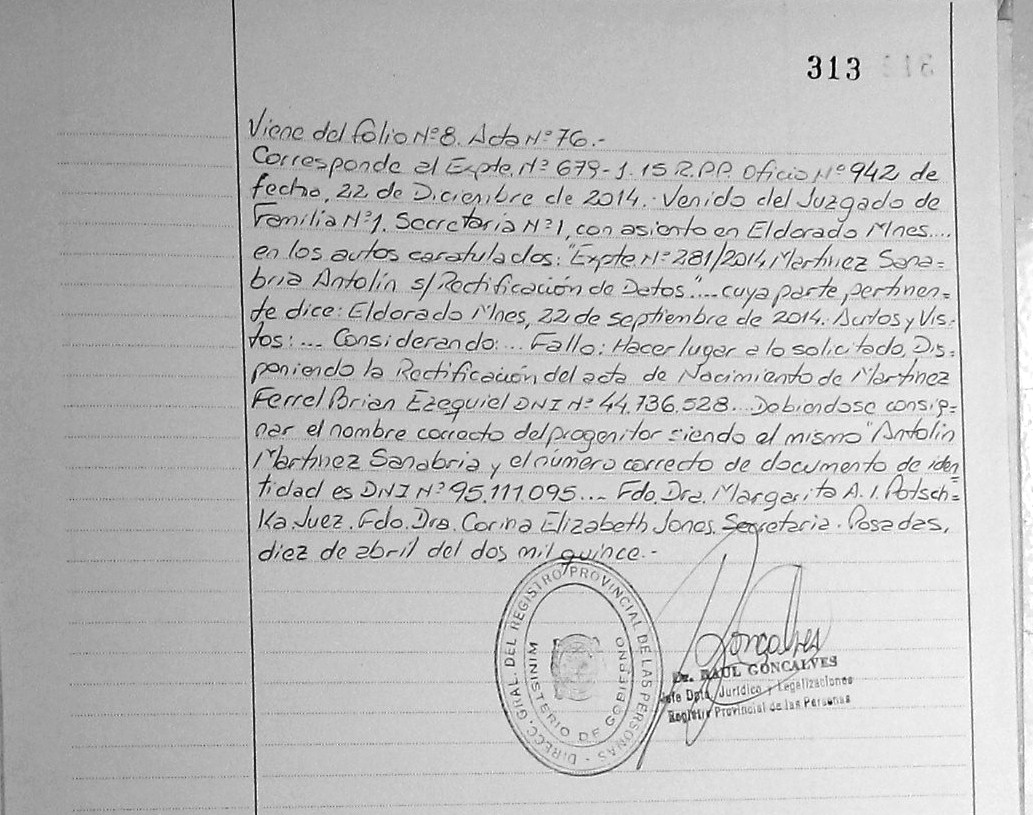 313 316
Viene del folio Nº 8. Acta Nº 76.-
Corresponde al Expte. Nº 679-1. 15 R.P.P. Oficio Nº 942 de
fecha, 22 de Diciembre de 2014. Venido del Juzgado de
Familia Nº 1. Secretaria Nº 1, con asiento en Eldorado Mnes....
en los autos caratulados: "Expte. Nº 281/2014, Martinez Sana=
bria Antolín s/Rectificación de Datos".... cuya parte pertinen=
te dice: Eldorado Mnes, 22 de septiembre de 2014. Autos y Vis=
tos:.... Considerando:... Fallo: Hacer lugar a lo solicitado, Dis=
poniendo la Rectificación del acta de Nacimiento de Martinez
Ferrel Brian Ezequiel DNI Nº 44.736.528.... Debiendose consig=
nar el nombre correcto del progenitor siendo el mismo "Antolin
Martinez Sanabria y el número correcto de documento de iden
tidad es DNI Nº 95.111.095.... Fdo. Dra. Margarita A. I. Potsch=
Ka Juez. Fdo. Dra. Corina Elizabeth Jones. Secretaria. Posadas,
diez de abril del dos mil quince.-
DIRECC. GRAL. DEL REGISTRO PROVINCIAL DE LAS PERSONAS
MINISTERIO DE GOBIERNO
Gonçalves
Dr. RAUL GONCALVES
Jefe Dpto. Jurídico y Legalizaciones
Registro Provincial de las Personas